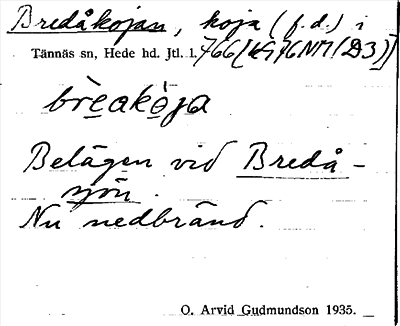 Bredåkojan, koja (f.d.) i
Tännäs sn, Hede hd. Jtl. l. 766[kG76NM(D3)]
brèakója
Belägen vid Bredå-
sjön.
Nu nedbränd.
O. Arvid Gudmundson 1935.